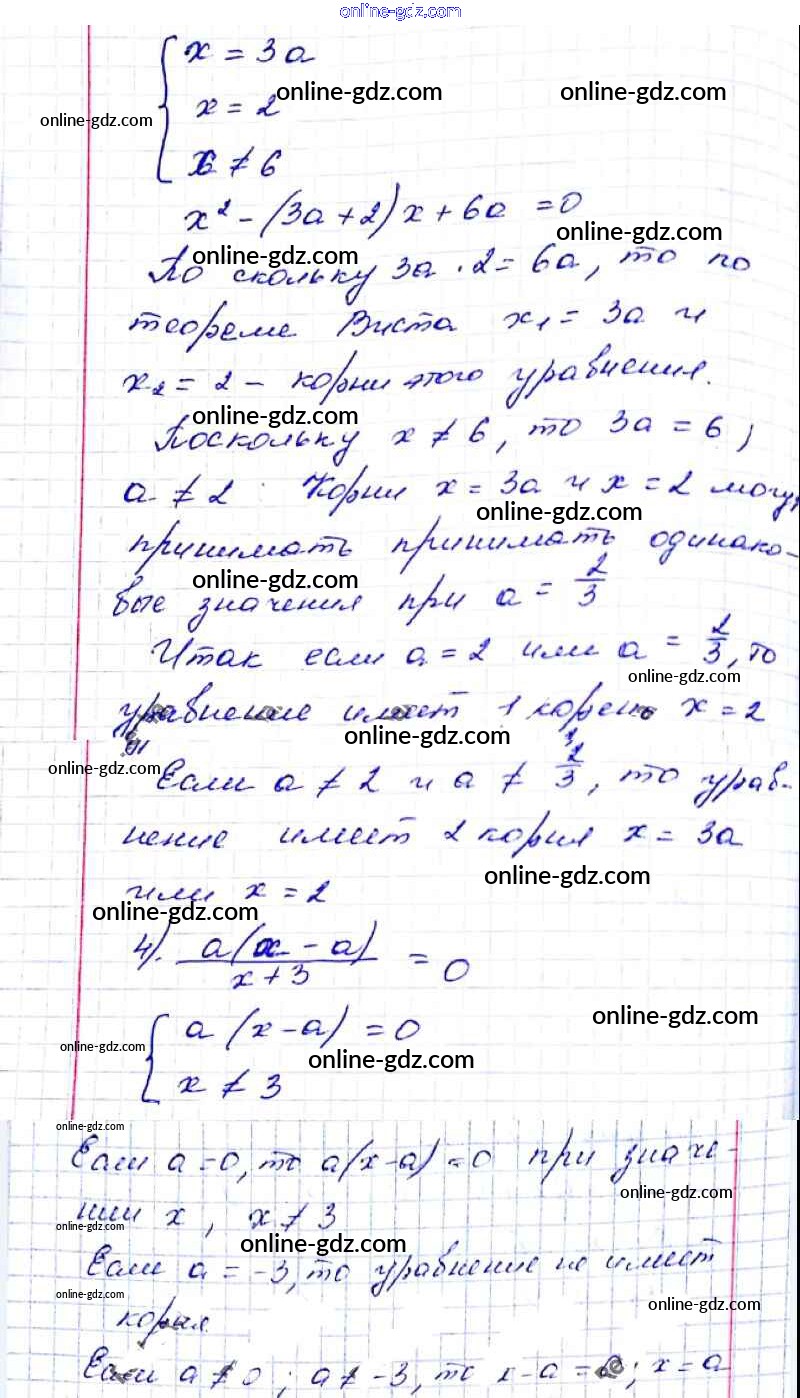 online-gdz.com
x = 3a
online-gdz.com online-gdz.com
x = 2
online-gdz.com
x ≠ 6
x² - (3a + 2)x + 6a = 0
online-gdz.com
online-gdz.com
По скольку 3a · 2 = 6a, то по
теореме Виета x₁ = 3a и
x₂ = 2 - корни этого уравнения.
online-gdz.com
Поскольку x ≠ 6, то 3a = 6,
a ≠ 2. Корни x = 3a и x = 2 могут
online-gdz.com
принимать принимать одинако-
online-gdz.com
вые значения при a = 2/3
Итак если a = 2 или a = 2/3, то
online-gdz.com
уравнение имеет 1 корень x = 2
online-gdz.com
online-gdz.com
Если a ≠ 2 и a ≠ 2/3, то урав-
нение имеет 2 корня x = 3a
online-gdz.com
или x = 2
online-gdz.com
4). a(x - a)/x + 3 = 0
online-gdz.com
a(x - a) = 0
online-gdz.com
online-gdz.com
x ≠ 3
online-gdz.com
Если a = 0, то a(x-a) = 0 при значе-
online-gdz.com
нии x, x ≠ 3
online-gdz.com
online-gdz.com
Если a = -3, то уравнение не имеет
online-gdz.com
online-gdz.com
корня.
Если a ≠ 0; a ≠ -3, то x-a = 0; x = a